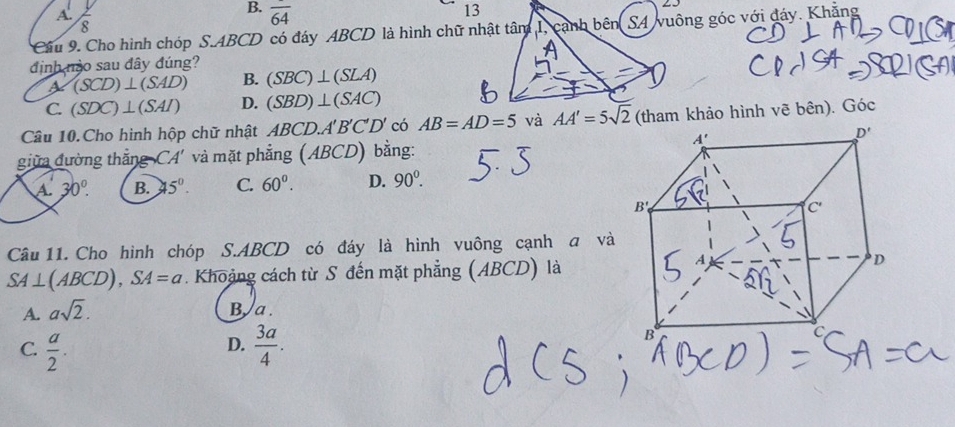 A. 1/8 B. /64 13
Câu 9. Cho hình chóp S.ABCD có đáy ABCD là hình chữ nhật tâm I, cạnh bên SA vuông góc với đáy. Khẳng
định nào sau đây đúng?
A. (SCD) ⊥ (SAD) B. (SBC) ⊥ (SIA)
C. (SDC) ⊥ (SAI) D. (SBD) ⊥ (SAC)
CD ⊥ AD
CD ⊥ SA
A
B
D
C
I
Câu 10. Cho hình hộp chữ nhật ABCD.A'B'C'D' có AB = AD = 5 và AA' = 5√2 (tham khảo hình vẽ bên). Góc
giữa đường thẳng CA' và mặt phẳng (ABCD) bằng:
A. 30⁰. B. 45⁰. C. 60⁰. D. 90⁰.
5.5
A' D'
B' 5√2 C'
5
5 A D
5√2
B C
Câu 11. Cho hình chóp S.ABCD có đáy là hình vuông cạnh a và
SA ⊥ (ABCD), SA = a. Khoảng cách từ S đến mặt phẳng (ABCD) là
A. a√2. B. a.
C. a/2. D. 3a/4.
d(S; ABCD) = SA = a